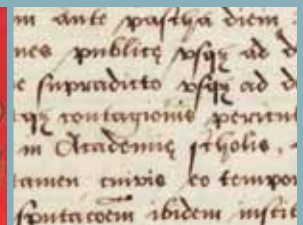 m ante pascha diem
nes publicę vsqȝ ad d
e supradicto vsqȝ ad d
tqȝ contagionis pericul
in Academię scholis.
tamen cuivis eo tempor
sputacōem ibidem instit